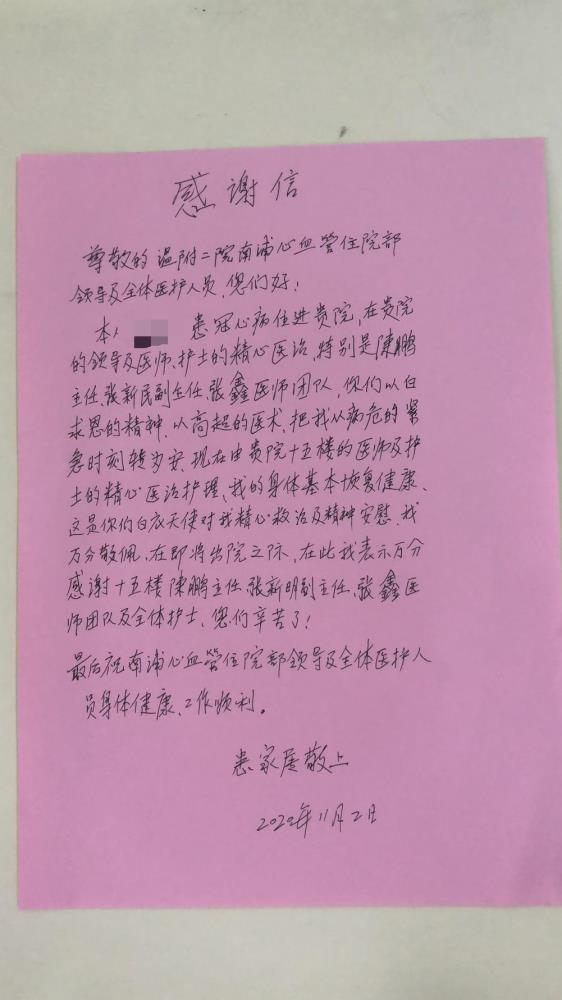 感谢信
尊敬的温附二院南浦心血管住院部
领导及全体医护人员,您们好!
本人 患冠心病住进贵院,在贵院
的领导及医师、护士的精心医治,特别是陳鹏
主任、张新民副主任、张鑫医师团队,你们以白
求恩的精神,以高超的医术,把我从病危的紧
急时刻转为安,现在由贵院十五楼的医师及护
士的精心医治护理,我的身体基本恢复健康、
这是你们白衣天使对我精心救治及精神安慰,我
万分敬佩,在即将出院之际,在此我表示万分
感谢十五楼陳鹏主任、张新明副主任、张鑫医
师团队及全体护士,您们辛苦了!
最后祝南浦心血管住院部领导及全体医护人
员身体健康、工作顺利。
患家属敬上
2020年11月2日